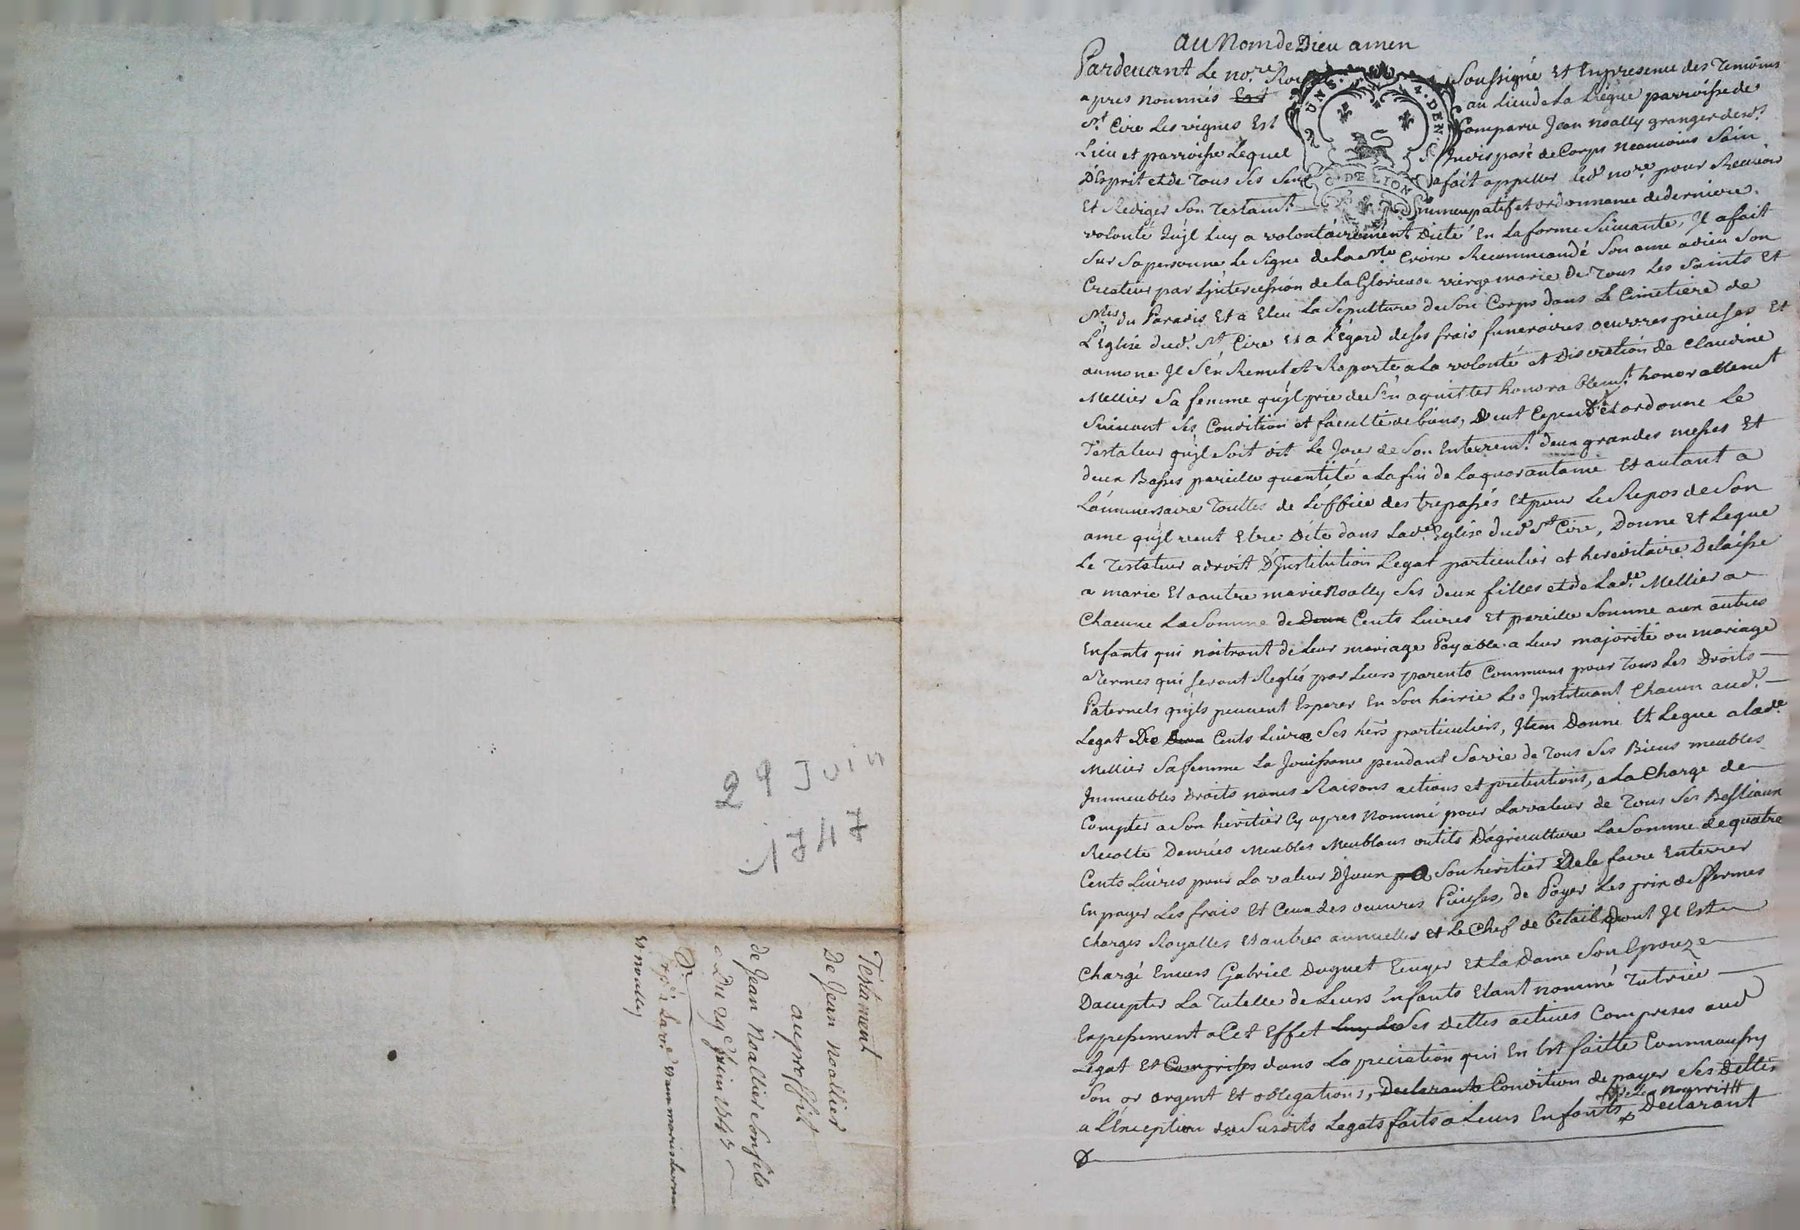 au Nom de Dieu amen
Pardevant Le no.re Soussigné Et En presence des Temoins
apres nommés Est au Lieu de La Liegue parroisse de
St Cire Les vignes Est Comparu Jean Noally granger dud.t
Lieu et parroisse Lequel Indisposé de Corps neamoins Sain
D'Esprit et de Tous Ses Sens a fait appeller led no.re pour Recevoir
Et Rediger Son Testam.t Nuncupatif et ordonnance de derniere
volonté quil Luy a volontairement Dicté En La forme Suivante, Il a fait
Sur Sa personne Le Signe de La Ste Croix Recommandé Son ame a dieu Son
Createur par L'jntercession de La Glorieuse vierge marie De Tous Les Saints Et
Stes du Paradis Et a Eleu La Sepulture de Son Corps dans Le Cimetiere de
L'Eglise dud. St Cire Et a L'égard de Ses frais funeraires oeuvres pieuses Et
aumone Jl S'En Remet et Raporte a La volonté et Discretion de Claudine
Mellier Sa femme qu'jl prie de S'En aquitter honorablem.t honorablement
Suivant Ses Condition et faculté de biens, Veut Cepend.t et ordonne Le
Testateur qu'jl Soit dit Le Jour de Son Enterrem.t deux grandes messes Et
deux Basses pareille quantité a La fin de La quarantaine Et autant a
L'anniversaire Touttes de L'office des trepassés Et pour Le Repos de Son
ame qu'jl veut Etre Dite dans Lad.e Eglise dud St Cire, Donne Et Legue
Le Testateur a droit D'Jnstitution Legat particulier et hereditaire Delaisse
a marie Et a autre marie Noally Ses deux filles et de Lad.e Mellier a
Chacune La Somme de Deux Cents Livres Et pareille Somme aux autres
Enfants qui naitront de Leur mariage Payable a Leur majorité ou mariage
a Termes qui Seront Reglés par Leurs parents Communs pour Tous Les Droits
Paternels qu'jls peuvent Esperer En Son hoirie Les Jnstituant Chacun aud.
Legat De Deux Cents Livre Ses hers particuliers, Jtem Donne Et Legue a lad.e
Mellier Sa femme La Jouissance pendant Sa vie de Tous Ses Biens meubles
Jmmeubles Droits noms Raisons actions et pretentions, a La Charge de
Compter a Son heritier Cy apres Nommé pour La valeur de Tous Ses Bestiaux
Recolte Danrées Meubles Meublans outils D'agriculture La Somme de quatre
Cents Livres pour La valeur D'Jceux a Son heritier De le faire Enterrer
En payer Les frais Et Ceux des oeuvres Pieuses, de Payer Les prix de ffermes
Charges Royalles Et autres annuelles et Le Chef de betail Dont Jl Est
Chargé Envers Gabriel Duguet Et La Dame Son Epouze
D'accepter La Tutelle de Leurs Enfants Etant nommé Tutrice
Expressement a Cet Effet Ses Dettes actives Comprises aud
Legat Et Comprises dans La preciation qui En Est faitte Comm'aussy
Son or argent Et obligations, Declarant a Condition de payer Ses Dettes
a L'Exception des Susdits Legats faits a Leurs Enfants Declarant
29 Juin
1747
Testament
De Jean Noallier
au proffit
de Jean Noallier Son fils
Du 29e Juin 1747
Et noally